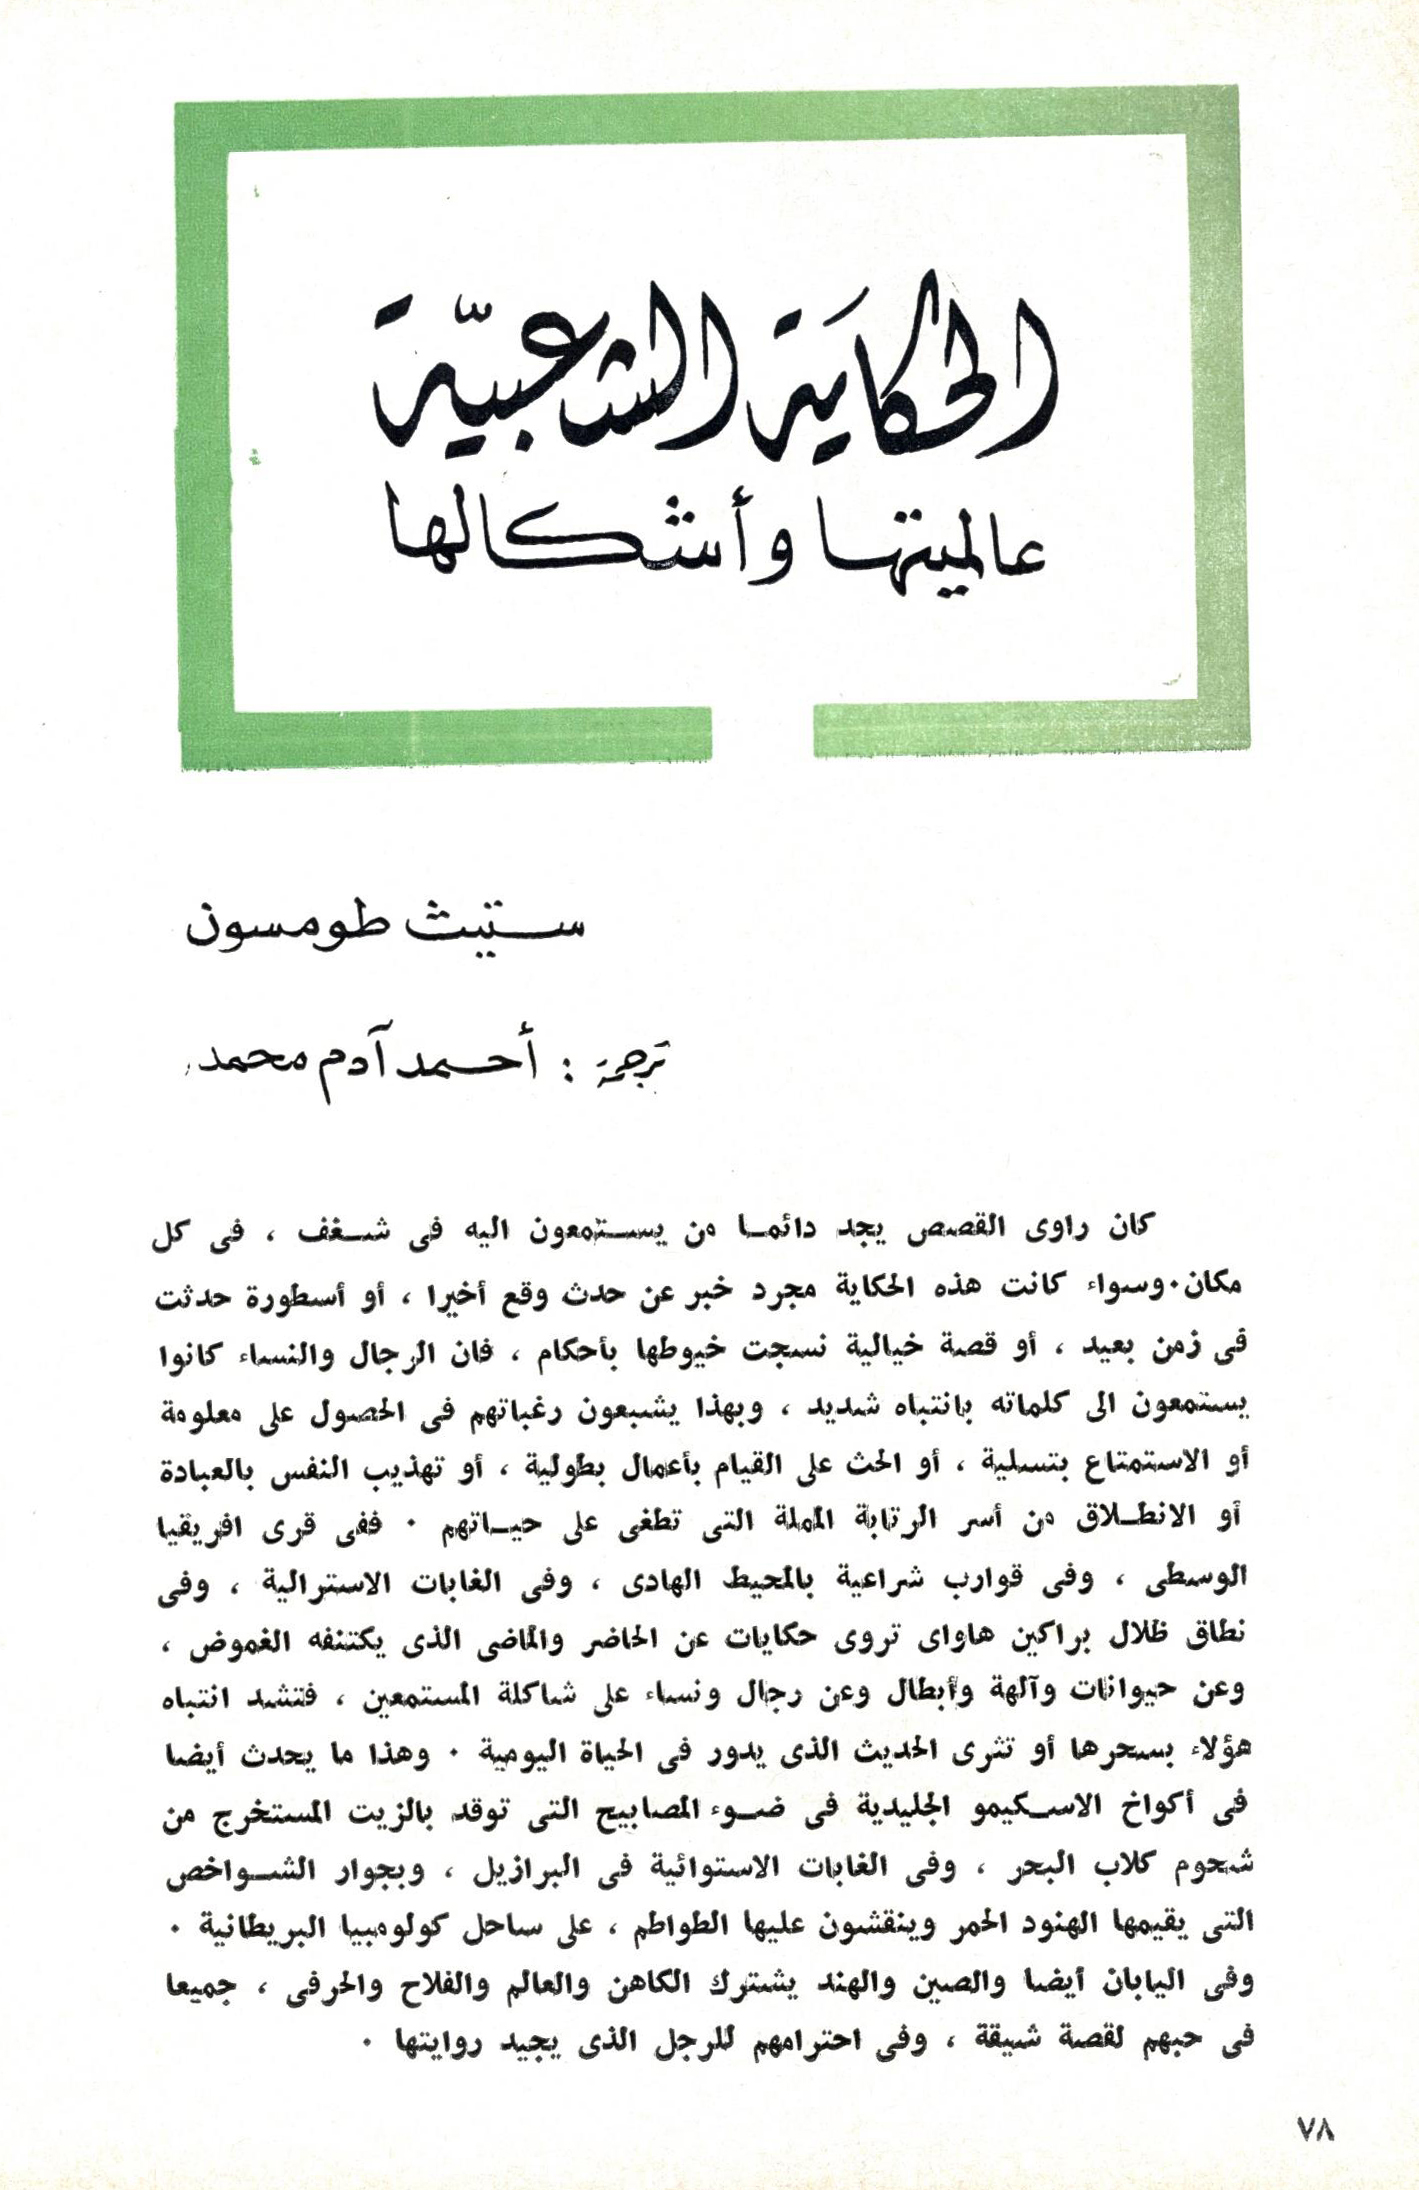 الحكاية الشعبيّة
عالميتها وأشكالها
ستيث طومسون
ترجمة : أحمد آدم محمد
كان راوى القصص يجد دائما من يستمعون اليه فى شغف ، فى كل
مكان ٠ وسواء كانت هذه الحكاية مجرد خبر عن حدث وقع أخيرا ، أو أسطورة حدثت
فى زمن بعيد ، أو قصة خيالية نسجت خيوطها بأحكام ، فان الرجال والنساء كانوا
يستمعون الى كلماته بانتباه شديد ، وبهذا يشبعون رغباتهم فى الحصول على معلومة
أو الاستمتاع بتسلية ، أو الحث على القيام بأعمال بطولية ، أو تهذيب النفس بالعبادة
أو الانطلاق من أسر الرتابة المملة التى تطغى على حياتهم ٠ ففى قرى افريقيا
الوسطى ، وفى قوارب شراعية بالمحيط الهادى ، وفى الغابات الاسترالية ، وفى
نطاق ظلال براكين هاواى تروى حكايات عن الحاضر والماضى الذى يكتنفه الغموض ،
وعن حيوانات وآلهة وأبطال وعن رجال ونساء على شاكلة المستمعين ، فتشد انتباه
هؤلاء بسحرها أو تثرى الحديث الذى يدور فى الحياة اليومية ٠ وهذا ما يحدث أيضا
فى أكواخ الاسكيمو الجليدية فى ضوء المصابيح التى توقد بالزيت المستخرج من
شحوم كلاب البحر ، وفى الغابات الاستوائية فى البرازيل ، وبجوار الشواخص
التى يقيمها الهنود الحمر وينقشون عليها الطواطم ، على ساحل كولومبيا البريطانية ٠
وفى اليابان أيضا والصين والهند يشترك الكاهن والعالم والفلاح والحرفى ، جميعا
فى حبهم لقصة شيقة ، وفى احترامهم للرجل الذى يجيد روايتها ٠
٧٨